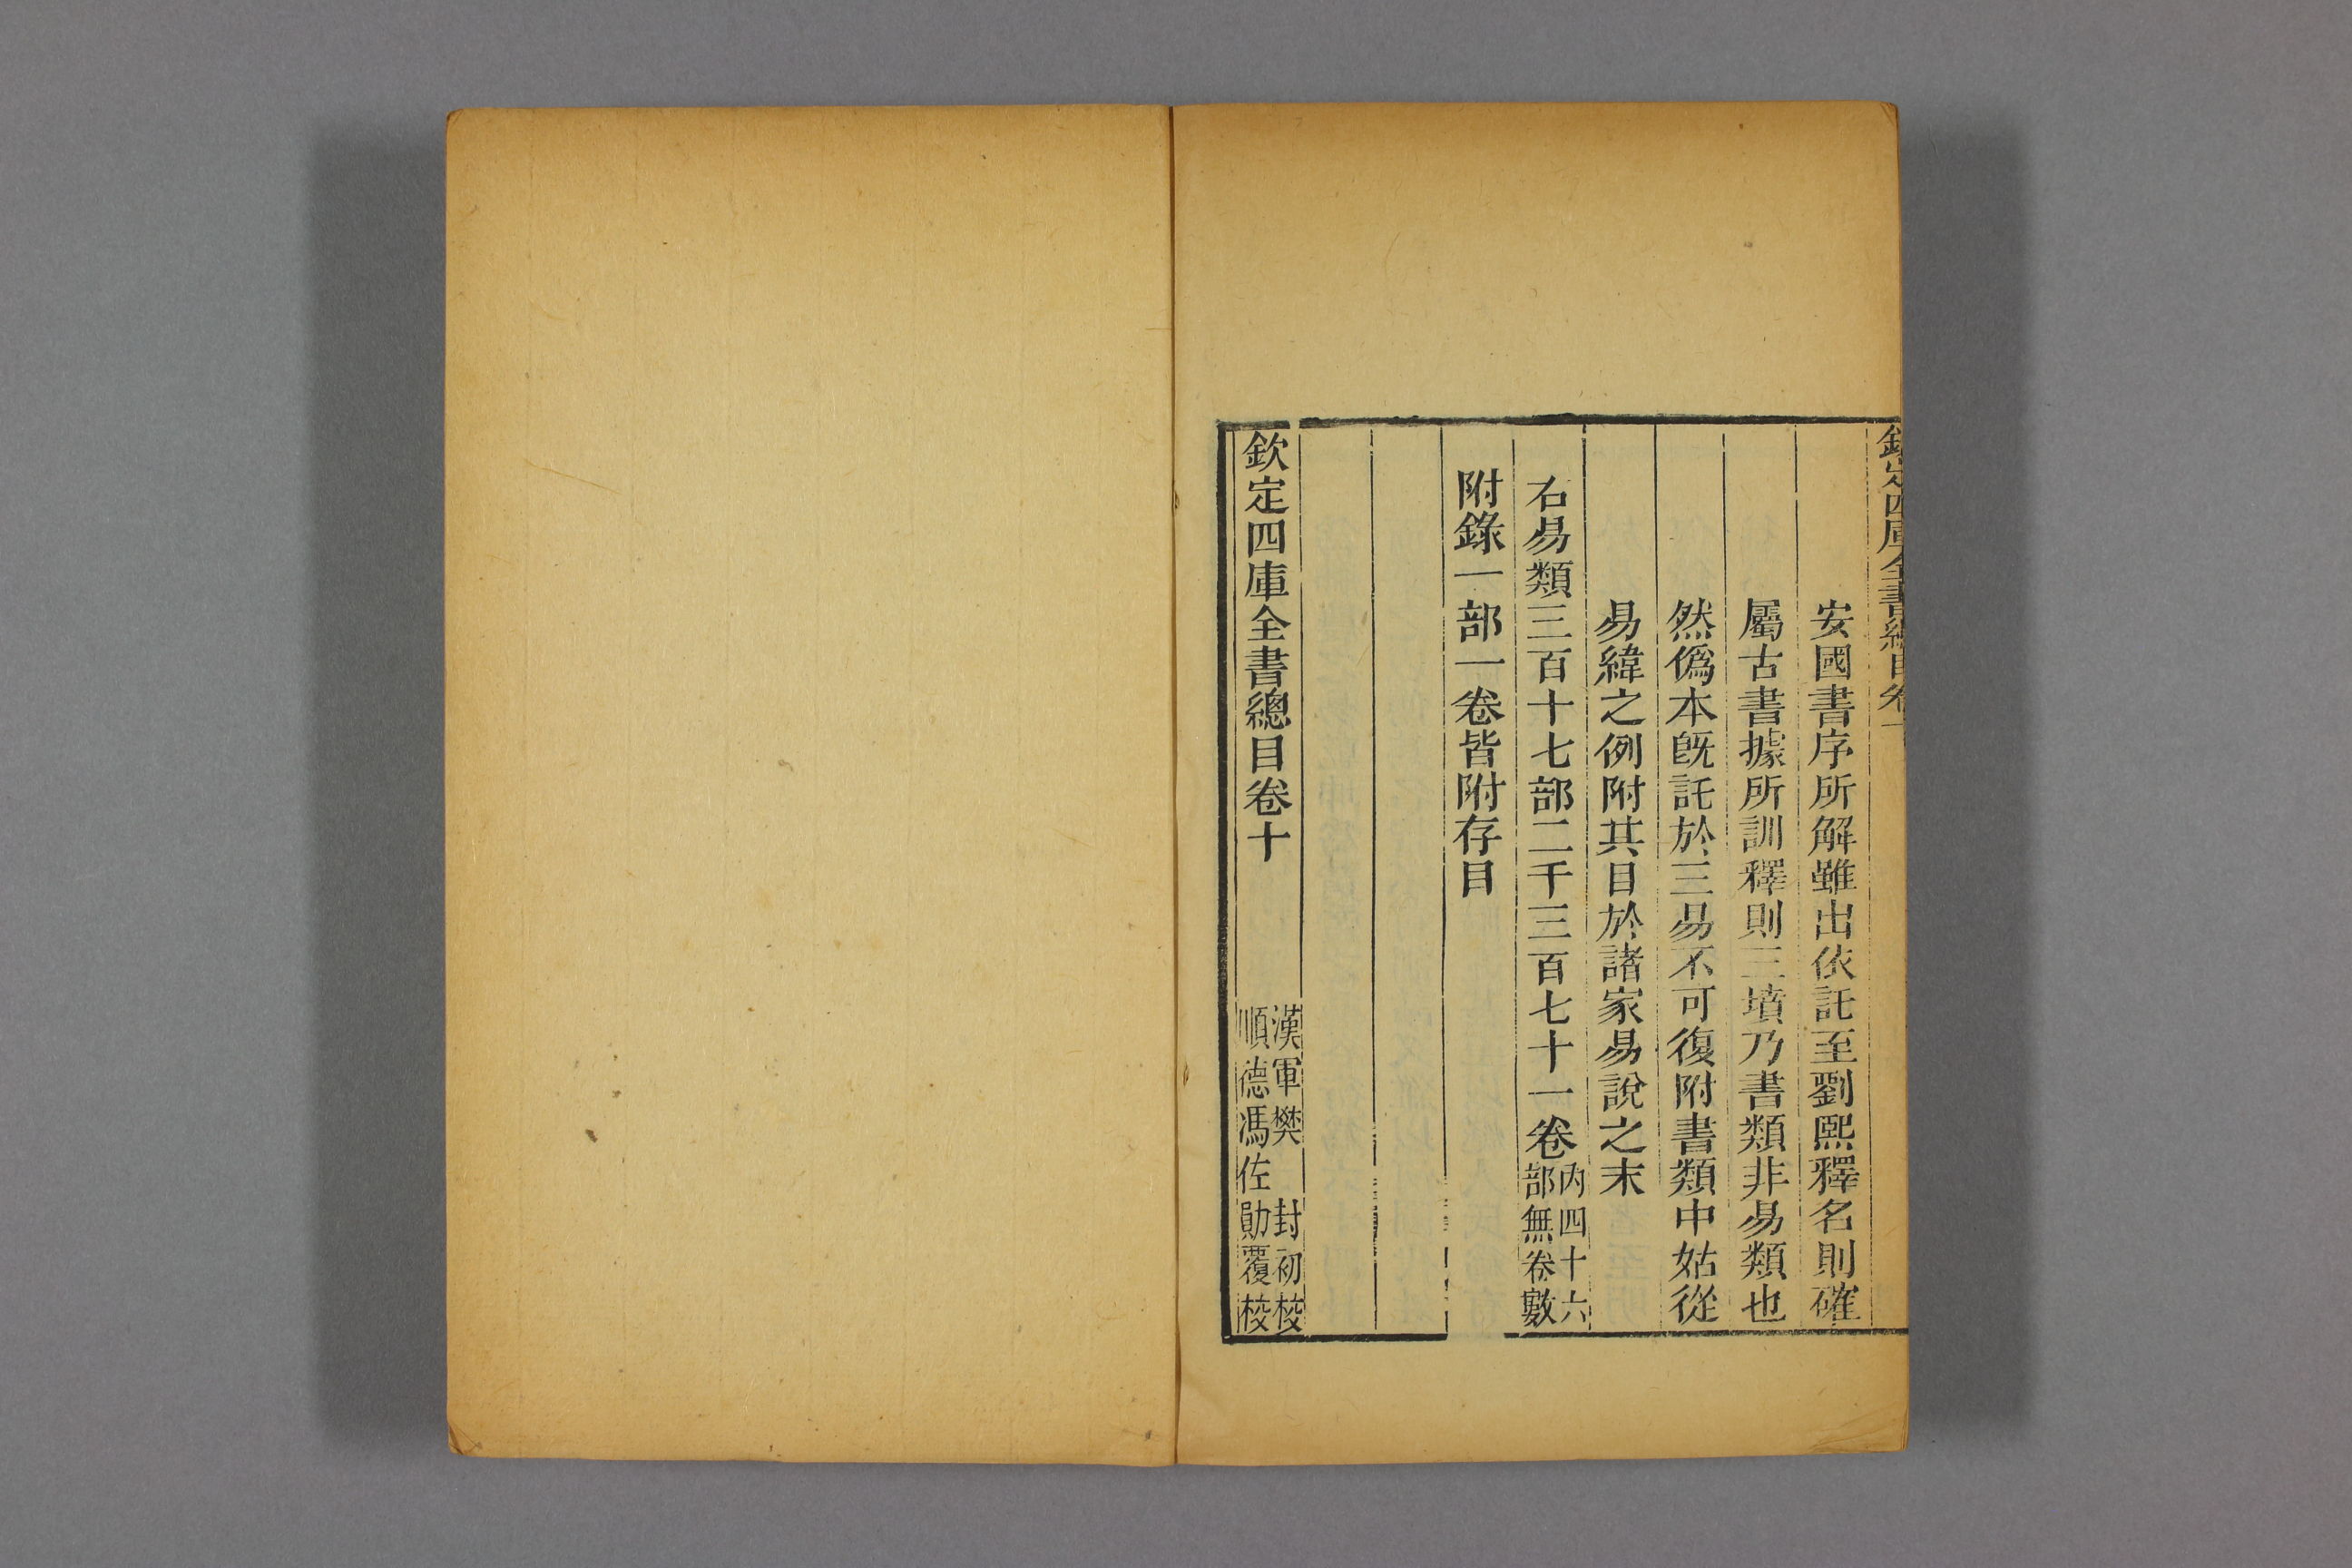 欽定四庫全書總目卷十
安國書序所解雖出依託至劉熙釋名則確
屬古書據所訓釋則三墳乃書類非易類也
然僞本旣託於三易不可復附書類中姑從
易緯之例附其目於諸家易說之末
右易類三百十七部二千三百七十一卷內四十六
部無卷數
附錄一部一卷皆附存目
欽定四庫全書總目卷十
漢軍樊 封初校
順德馮佐勛覆校